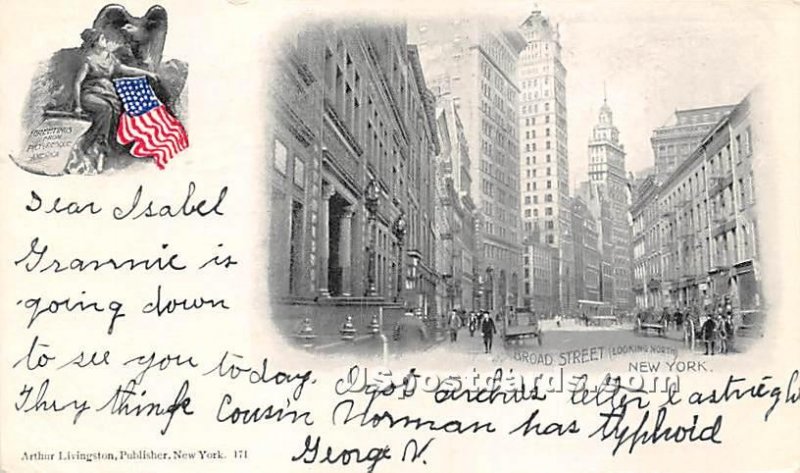 GREETINGS
FROM
PICTURESQUE
AMERICA
Dear Isabel
Grannie is
going down
to see you today. I got archies letter last night
They think Cousin Norman has typhoid
George V.
BROAD STREET (LOOKING NORTH)
NEW YORK.
USpostcards.com
Arthur Livingston, Publisher, New York. 171